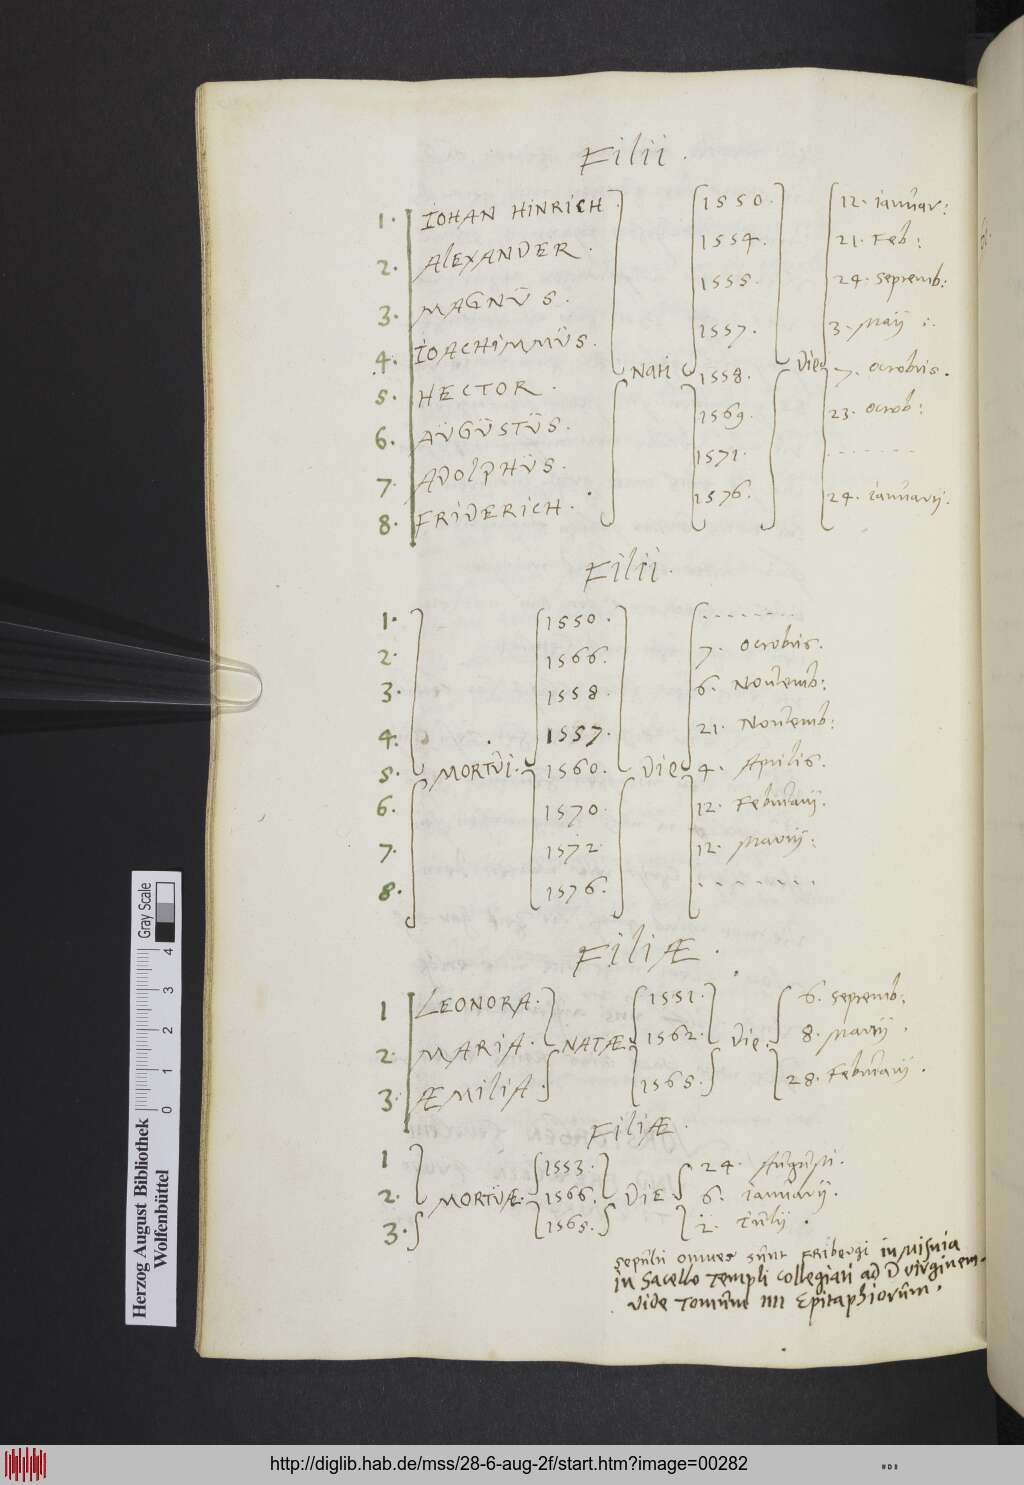 Filii.
1. IOHAN HINRICH 1550. 12. Ianuar:
2. ALEXANDER. 1554. 21. Feb:
3. MAGNŬS. 1555. 24. Septemb:
1557. 3. Maij :.
4. IOACHIMMŬS. NATI 1558. Die 7. Octobris.
5. HECTOR. 1569. 23. Octob:
6. AŬGŬSTŬS. 1571. . . . . . . .
7. ADOLPHŬS.
8. FRIDERICH. 1576. 24. Ianuarij.
Filii.
1. 1550. . . . . . . . .
2. 1566. 7. Octobris.
3. 1558. 6. Nouemb:
4. 1557. 21. Nouemb:
5. MORTŬI. 1560. Die 4. Aprilis.
6. 1570. 12. Februarij.
7. 1572. 12. Martij:
8. 1576. . . . . . . .
FiliÆ.
1 LEONORA. 1551. 6. Septemb:
2. MARIA. NATÆ 1562. Die. 8. Martij.
3. ÆMILIA. 1565. 28. Februarij.
FiliÆ.
1 1553. 24. Augusti.
2. MORTŬÆ. 1566. DIE 6. Ianuarij.
3. 1565. 2. Iulij.
sepulti omnes sunt Fribergi in Misnia
in Sacello Templi collegiati ad D virginem.
vide Tomum IIII Epitaphiorum.
Herzog August Bibliothek
Wolfenbüttel
0 1 2 3 4
Gray Scale
http://diglib.hab.de/mss/28-6-aug-2f/start.htm?image=00282